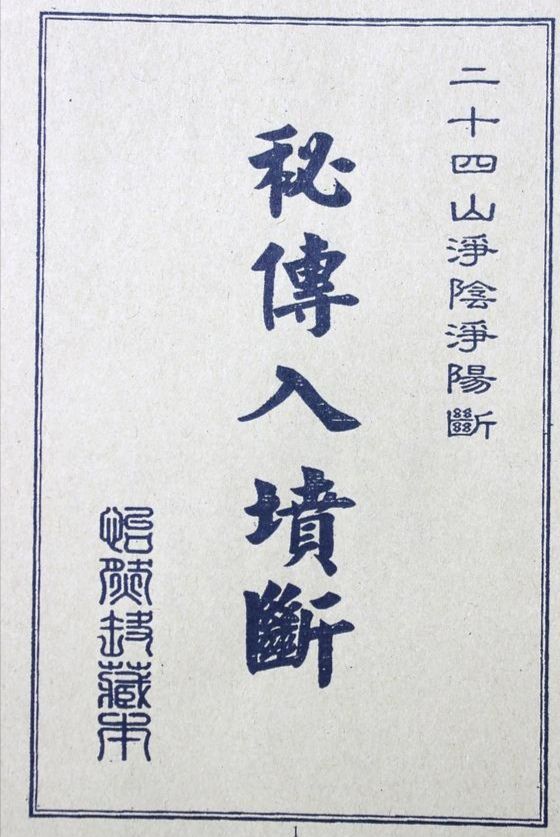 二十四山淨陰淨陽斷
秘傳入墳斷
藏本
1